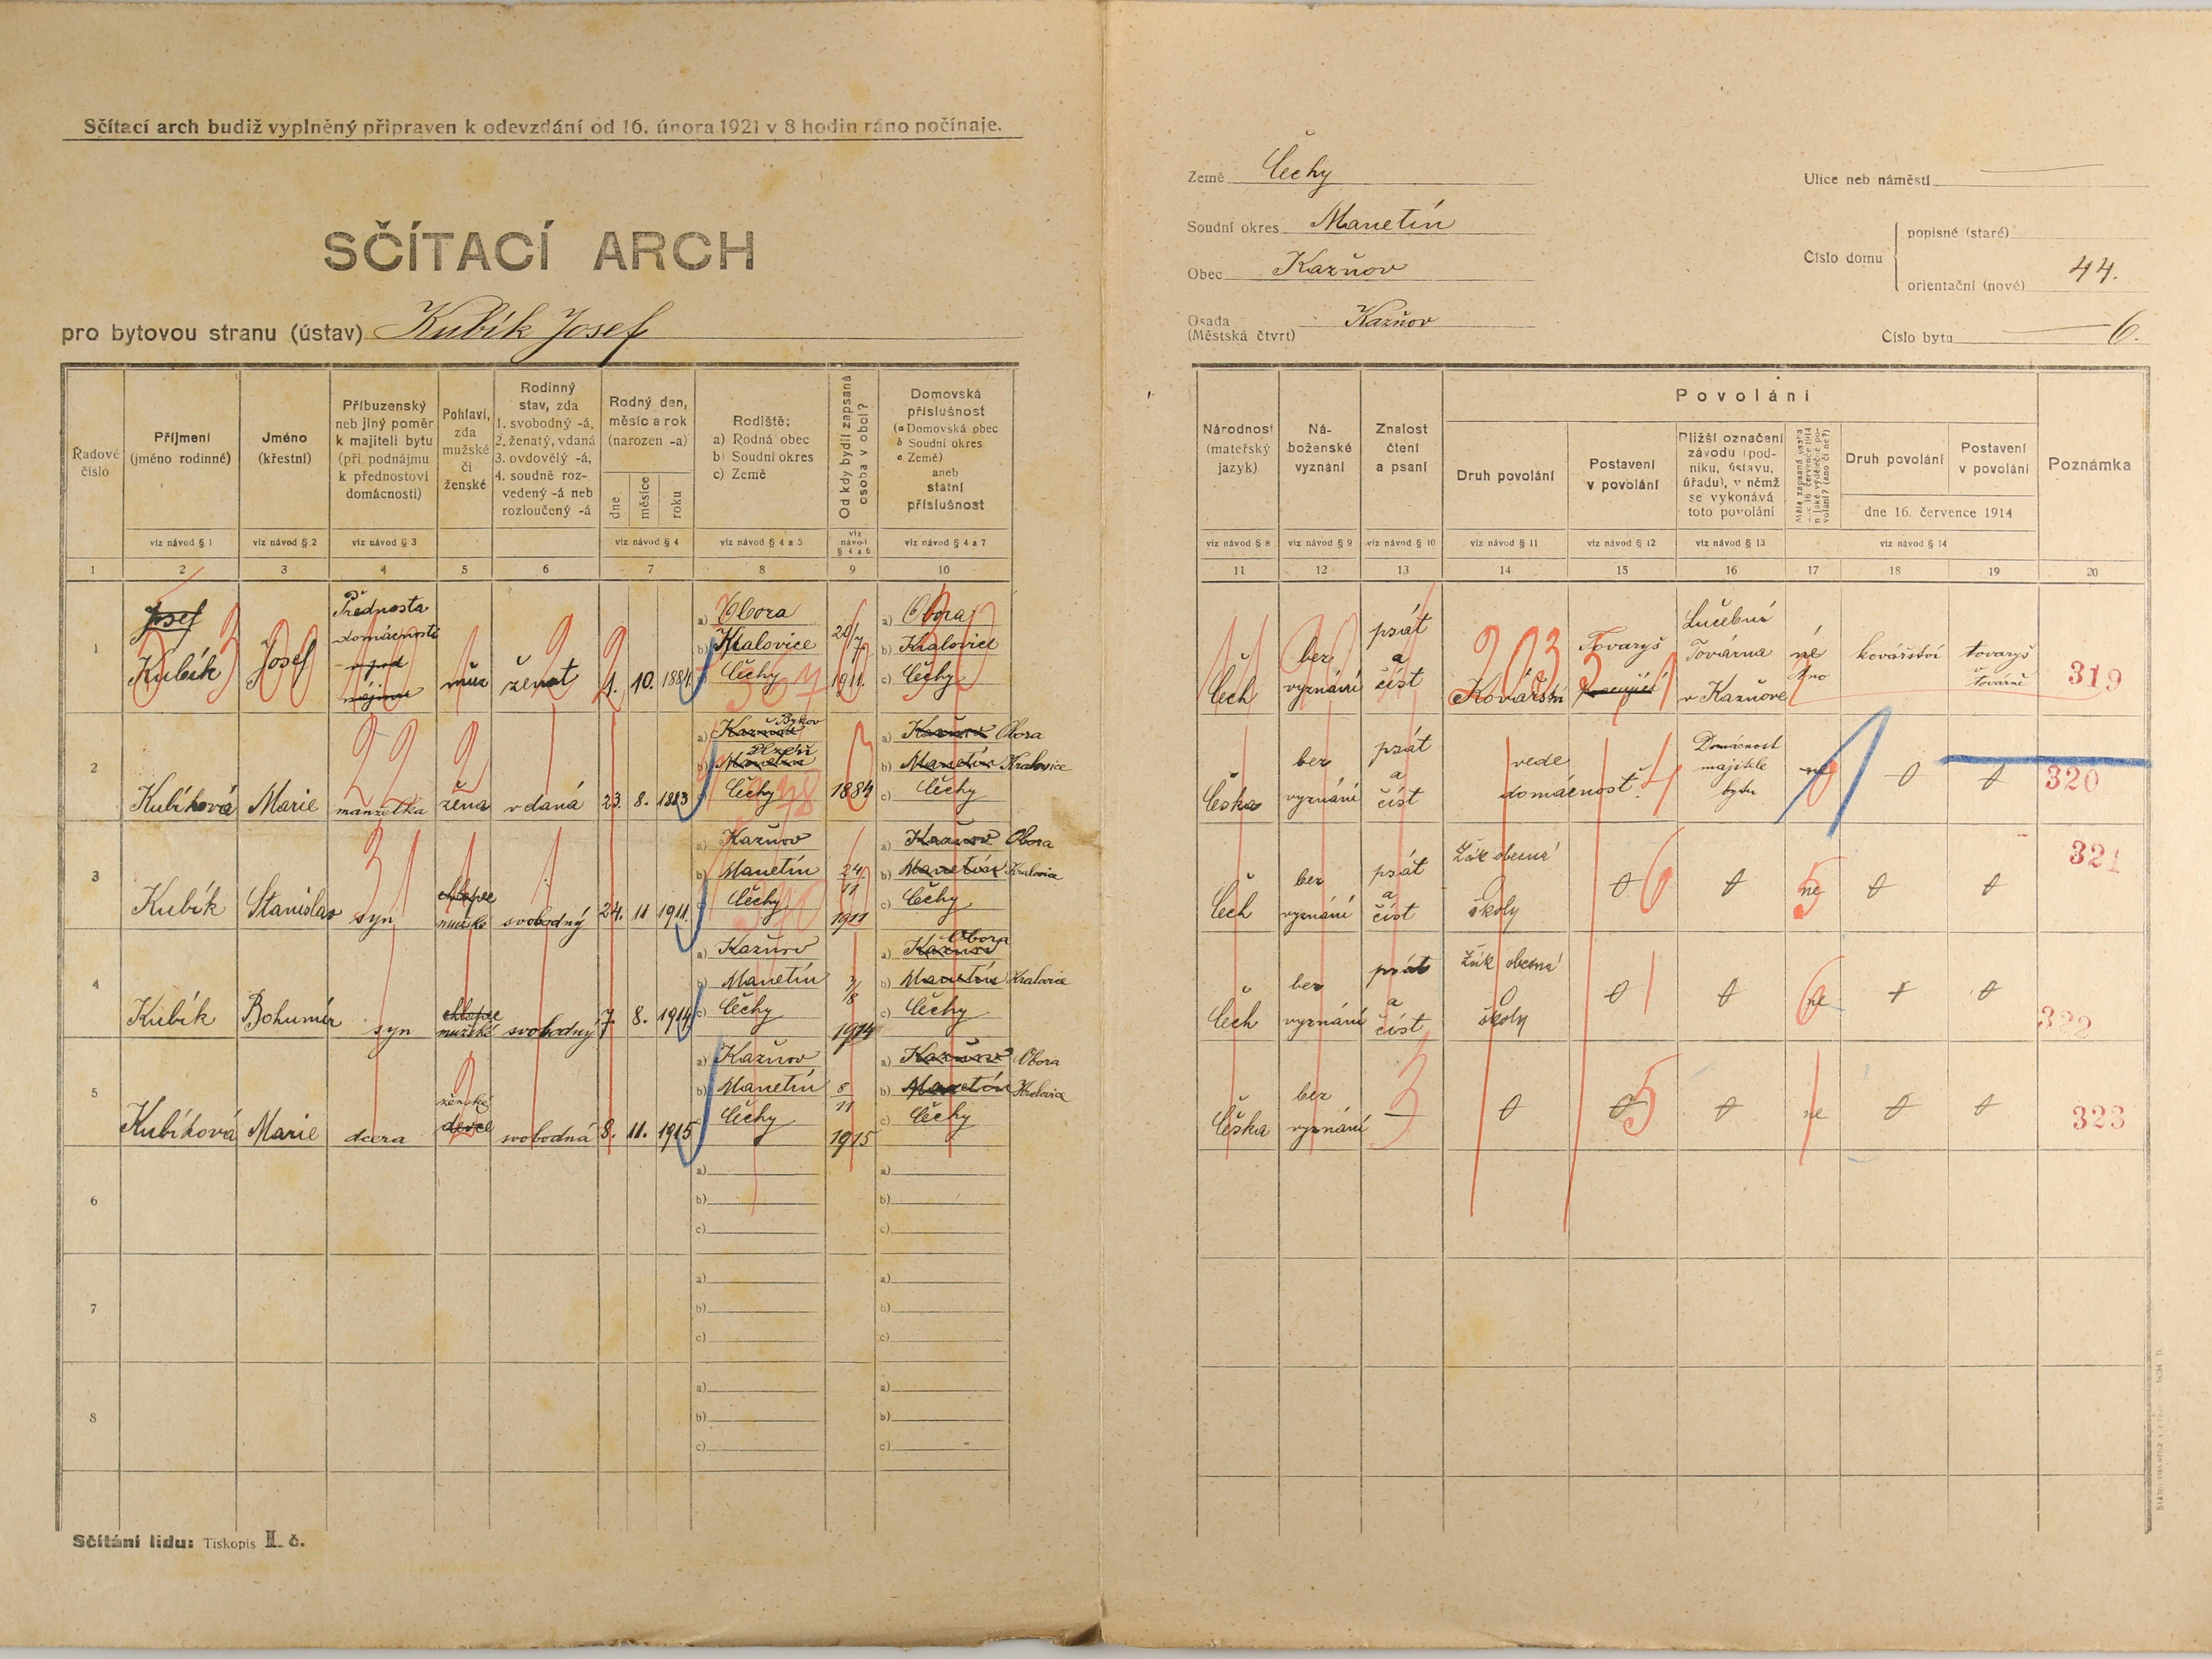 Sčítací arch budiž vyplněný připraven k odevzdání od 16. února 1921 v 8 hodin ráno počínaje.
SČÍTACÍ ARCH
pro bytovou stranu (ústav) Kubík Josef
Země Čechy
Soudní okres Manetín
Obec Kazňov
Osada
(Městská čtvrt) Kazňov
Ulice neb náměstí —
Číslo domu
popisné (staré)
orientační (nové) 44.
Číslo bytu — 6.
Řadové číslo
Příjmení (jméno rodinné)
Jméno (křestní)
Příbuzenský neb jiný poměr k majiteli bytu (při podnájmu k přednostovi domácnosti)
Pohlaví, zda mužské či ženské
Rodinný stav, zda 1. svobodný -á, 2. ženatý, vdaná 3. ovdovělý -á, 4. soudně rozvedený -á neb rozloučený -á
Rodný den, měsíc a rok (narozen -a)
dne
měsíce
roku
Rodiště:
a) Rodná obec
b) Soudní okres
c) Země
Od kdy bydlí zapsaná osoba v obci?
Domovská příslušnost
(a Domovská obec
b Soudní okres
c Země)
aneb státní příslušnost
Národnost (mateřský jazyk)
Náboženské vyznání
Znalost čtení a psaní
Povolání
Druh povolání
Postavení v povolání
Bližší označení závodu (podniku, ústavu, úřadu), v němž se vykonává toto povolání
Měla zapsaná osoba dne 16. července 1914 n. jaké výdělečné povolání? (ano či ne?)
Druh povolání
Postavení v povolání
dne 16. července 1914
Poznámka
viz návod § 1
viz návod § 2
viz návod § 3
viz návod § 4
viz návod § 4 a 5
viz návod § 4 a 6
viz návod § 4 a 7
viz návod § 8
viz návod § 9
viz návod § 10
viz návod § 11
viz návod § 12
viz návod § 13
viz návod § 14
1 2 3 4 5 6 7 8 9 10
11 12 13 14 15 16 17 18 19 20
1
Josef
Kubík
Josef
Přednosta
domácnosti
muž
ženat
2. 10. 1884
a) Obora
b) Kralovice
c) Čechy
20/7. 1911.
a) Obora
b) Kralovice
c) Čechy
Čech
bez
vyznání
psát
a
číst
Kovářství
Tovaryš
pracující
Lučební
Továrna
v Kazňově
né
Ano
kovářství
tovaryš
v
továrně
319
2
Kubíková
Marie
manželka
žena
vdaná
23. 8. 1883
a) Kazňov Bykov
b) Manetín Plzeň
c) Čechy
1884
a) Kazňov Obora
b) Manetín Kralovice
c) Čechy
Češka
bez
vyznání
psát
a
číst
vede
domácnost.
Domácnost
majitele
bytu
ne
0
0
320
3
Kubík
Stanislav
syn
chlapec
mužské
svobodný
24. 11 1911.
a) Kazňov
b) Manetín
c) Čechy
24/11 1911
a) Kazňov Obora
b) Manetín Kralovice
c) Čechy
Čech
bez
vyznání
psát
a
číst
Žák obecná
školy
0
0
ne
0
0
321
4
Kubík
Bohumír
syn
chlapec
mužské
svobodný
7. 8. 1914
a) Kazňov
b) Manetín
c) Čechy
7/8 1914
a) Kazňov Obora
b) Manetín Kralovice
c) Čechy
Čech
bez
vyznání
psát
a
číst
Žák obecná
školy
0
0
ne
0
0
322
5
Kubíková
Marie
dcera
ženské
děvče
svobodná
8. 11. 1915
a) Kazňov
b) Manetín
c) Čechy
8/11 1915
a) Kazňov Obora
b) Manetín Kralovice
c) Čechy
Češka
bez
vyznání
—
0
0
0
ne
0
0
323
6
a)
b)
c)
a)
b)
c)
7
a)
b)
c)
a)
b)
c)
8
a)
b)
c)
a)
b)
c)
Sčítání lidu: Tiskopis II. č.